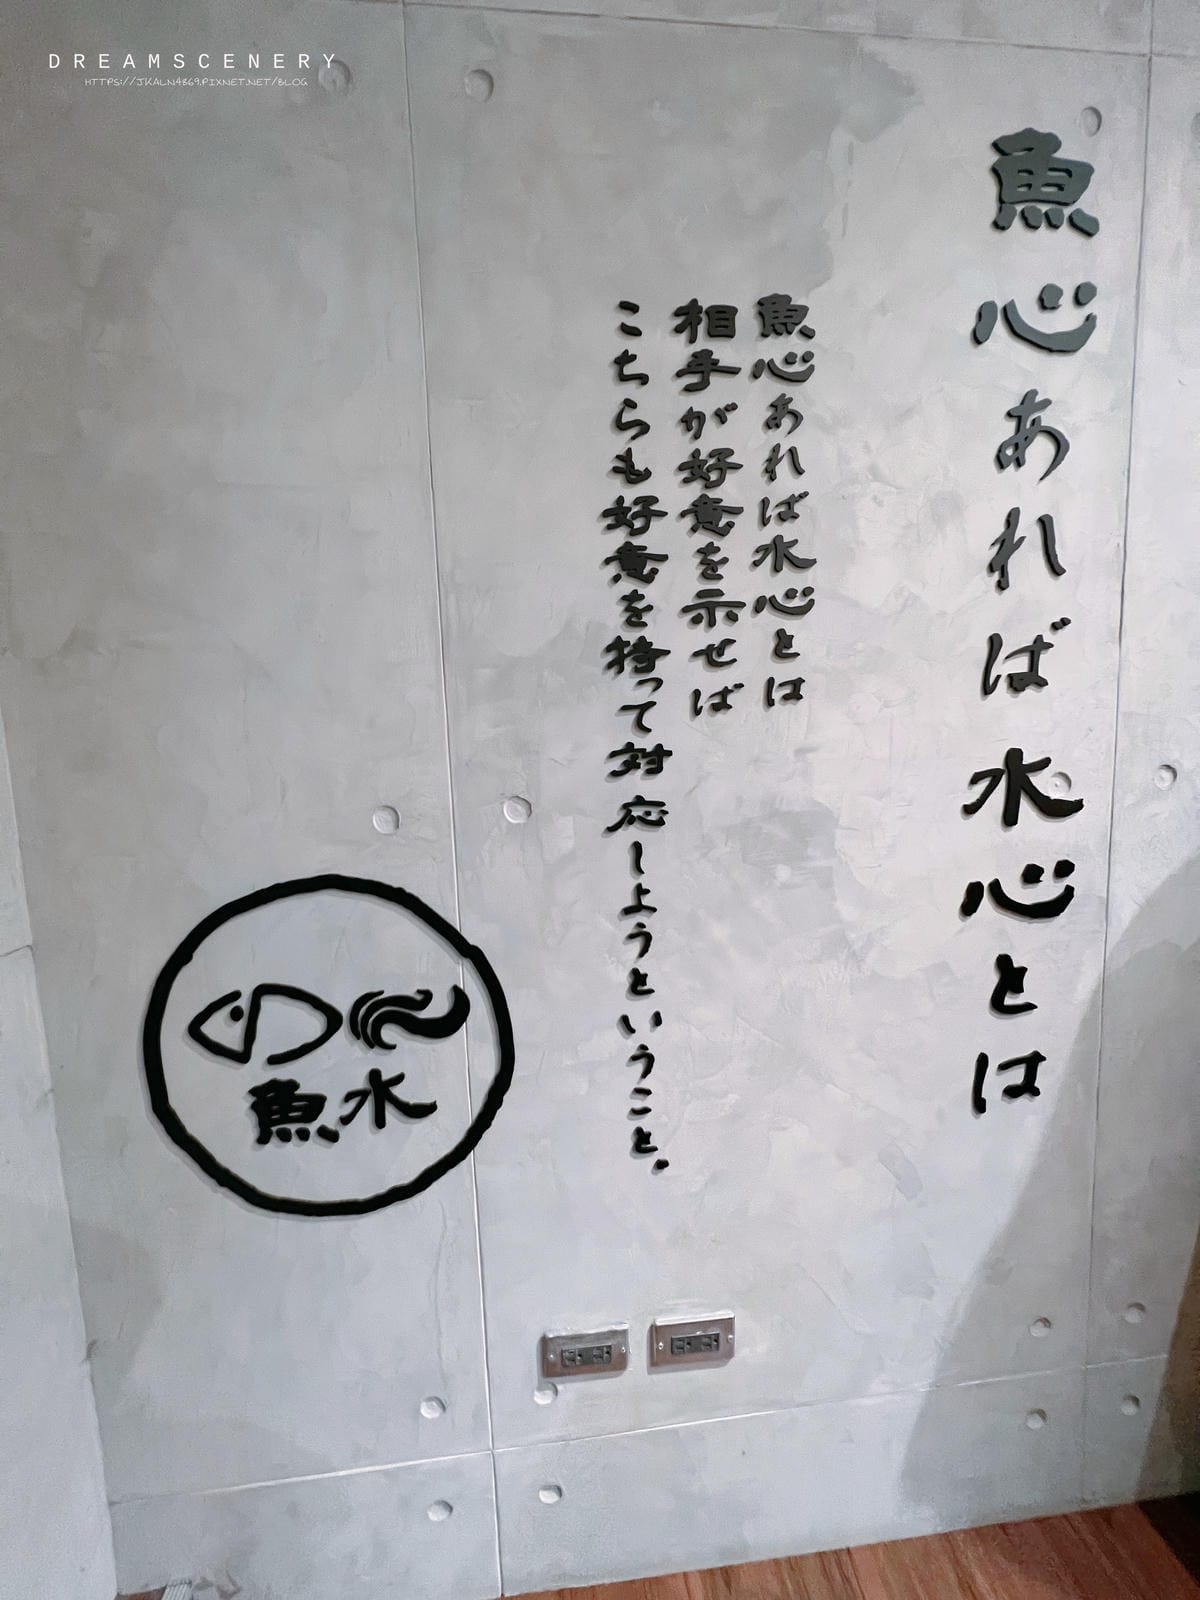 DREAMSCENERY
HTTPS://JKALN4869.PIXNET.NET/BLOG
魚心あれば水心とは
魚心あれば水心とは
相手が好意を示せば
こちらも好意を持って対応しようということ。
魚水